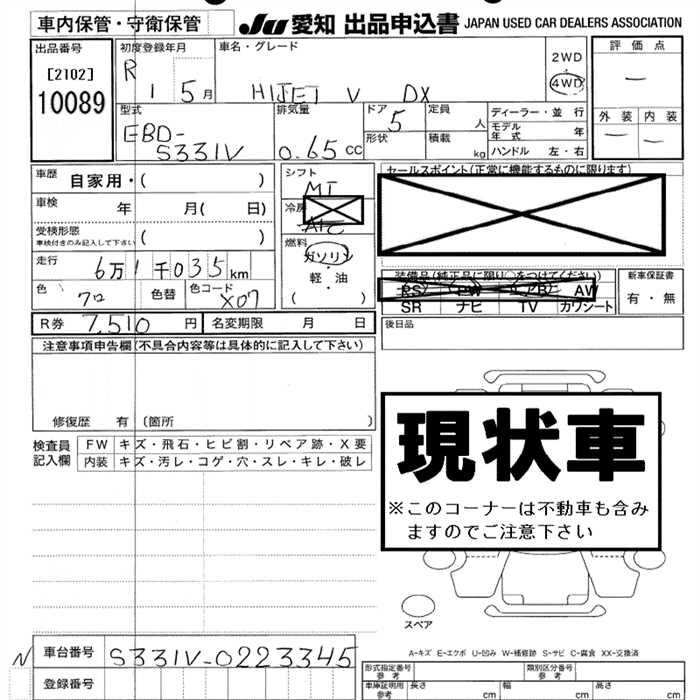 車内保管・守衛保管 JU 愛知 出品申込書 JAPAN USED CAR DEALERS ASSOCIATION
出品番号 [2102] 10089
初度登録年月 R 1 5月
車名・グレード HIJET V DX
2WD ・ 4WD
評価点 ―
外装 内装
― ―
型式 EBD-S331V
排気量 0.65 CC
ドア 5
形状
定員 人
積載 kg
ディーラー・並行
モデル年式 年
ハンドル 左・右
車歴 自家用・( )
車検 年 月( 日)
受検形態 車検付きのみ記入して下さい ( )
走行 6万1千035km
色 クロ 色替 色コード X07
シフト MT
冷房 A/C
燃料 ガソリン・軽・油 ( )
セールスポイント(正常に機能するものに限ります)
装備品(純正品に限り○をつけてください)
RS PW AB AW
SR ナビ TV カワシート
新車保証書 有・無
R券 7,510 円 名変期限 月 日
後日品
注意事項申告欄(不具合内容等は具体的に記入して下さい)
修復歴 有 〔箇所 〕
現状車
※このコーナーは不動車も含み
ますのでご注意下さい
検査員記入欄
FW キズ・飛石・ヒビ割・リペア跡・X要
内装 キズ・汚レ・コゲ・穴・スレ・キレ・破レ
スペア
A-キズ E-エクボ U-凹み W-補修跡 S-サビ C-腐食 XX-交換済
N 車台番号 S331V-0223345
登録番号
型式指定番号 参考 類別区分番号 参考
車庫証明用 参考 長さ cm 幅 cm 高さ cm